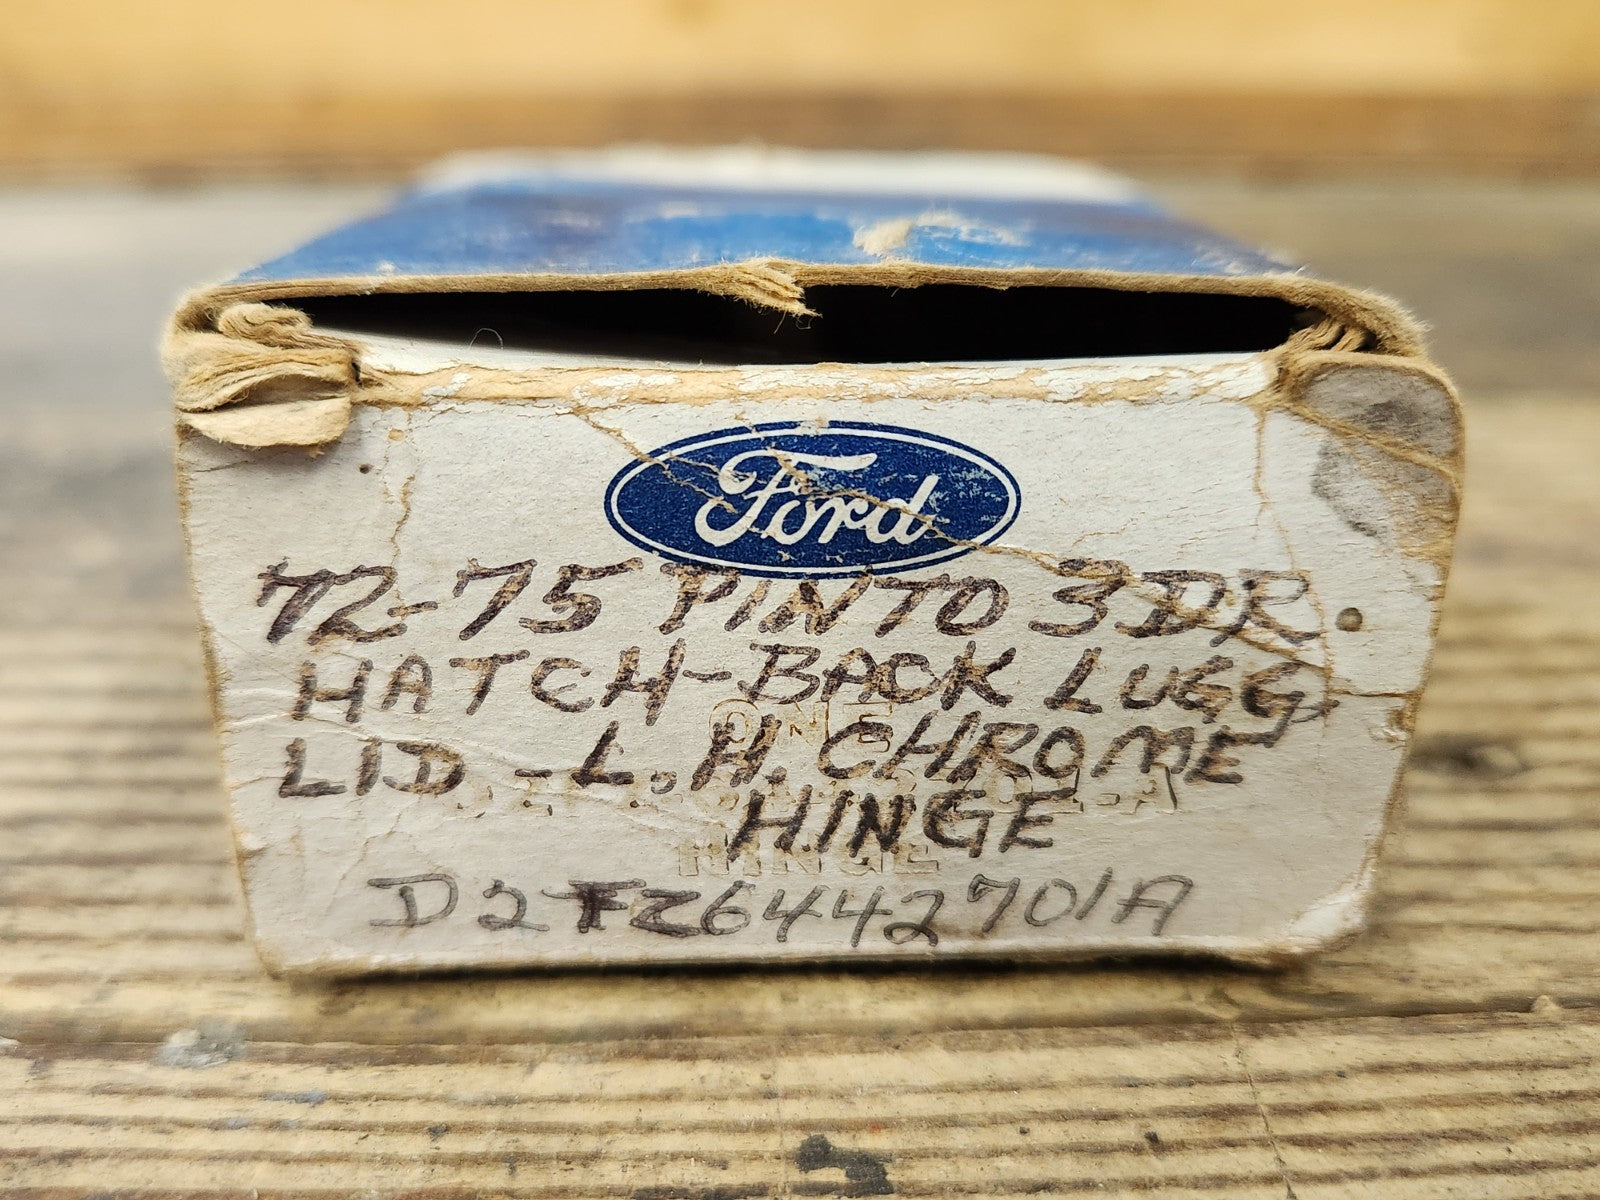 Ford
72-75 PINTO 3DR.
HATCH-BACK LUGG,
ONE
LID - L.H. CHROME
HINGE
HINGE
D2FZ6442701A